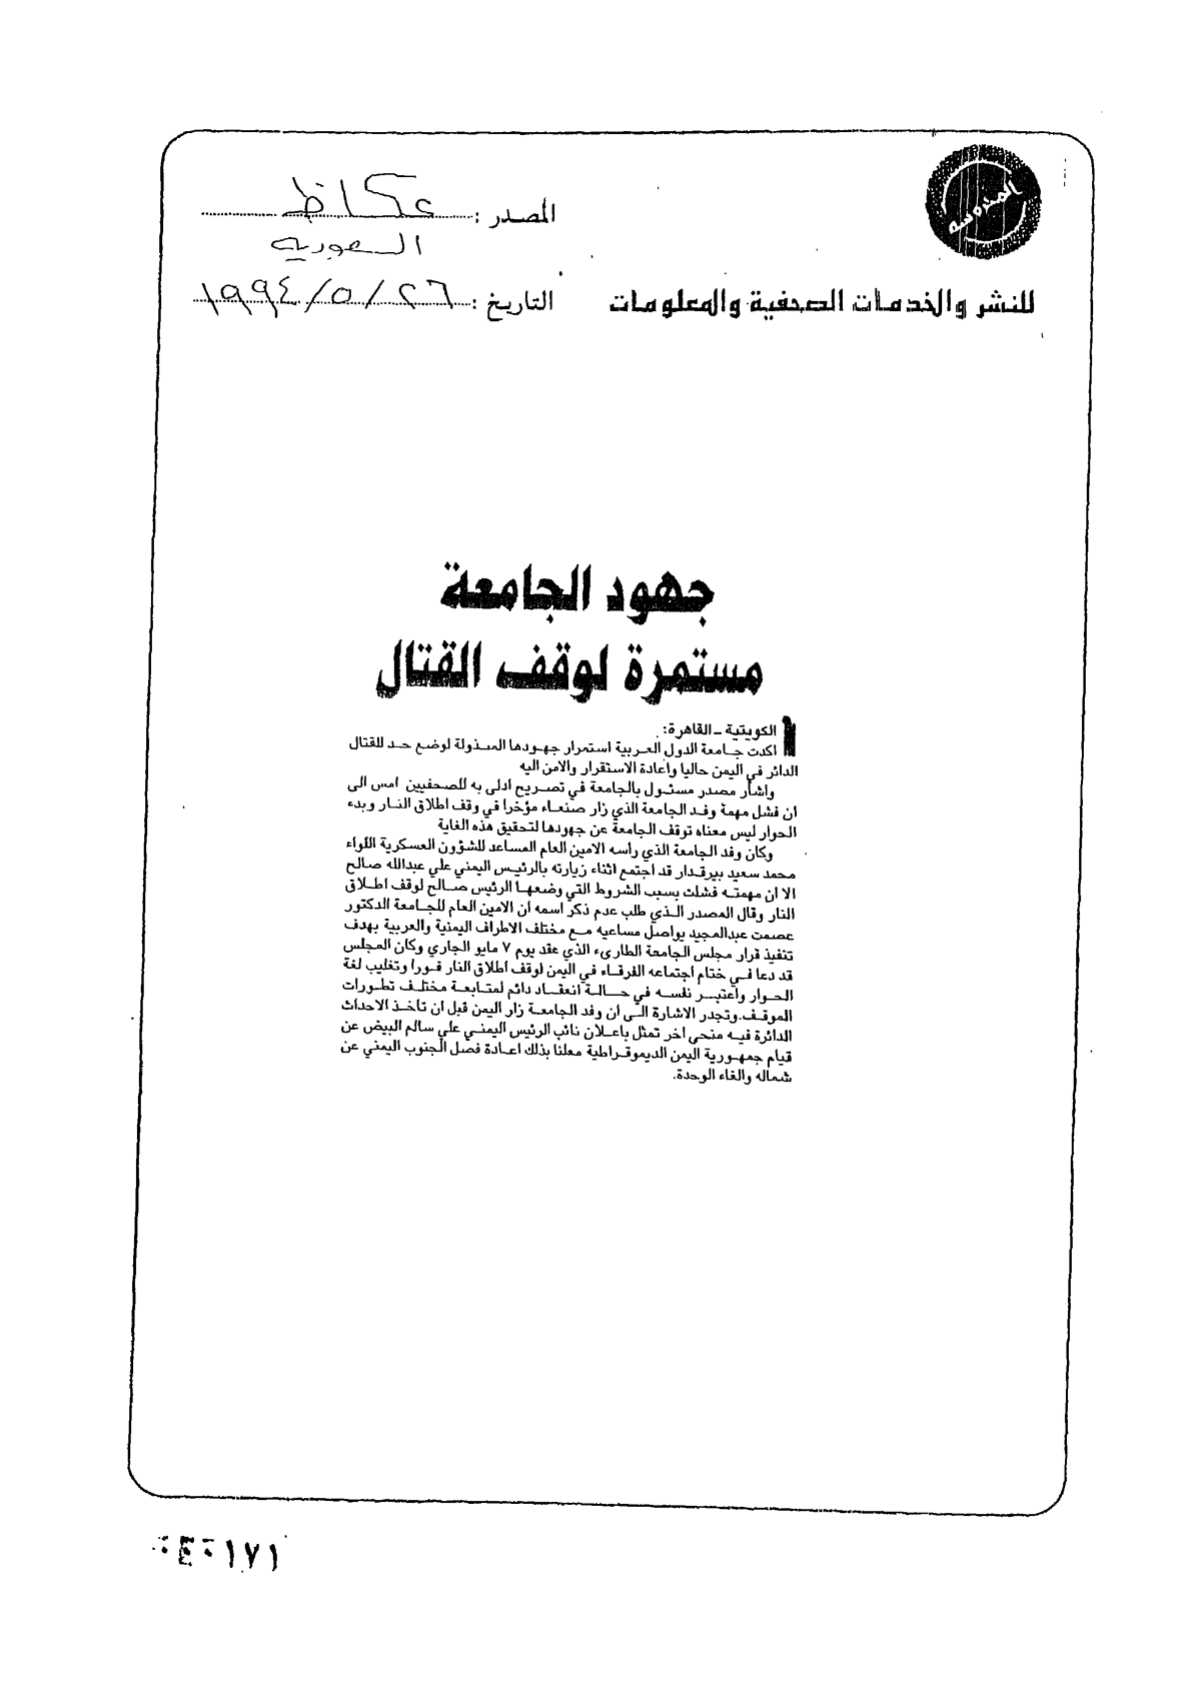 المحروسه
المصدر : عكاظ
السعوديه
للنشر والخدمات الصحفية والمعلومات
التاريخ : ٢٦ / ٥ / ١٩٩٤
جهود الجامعة
مستمرة لوقف القتال
الكويتية - القاهرة:
اكدت جامعة الدول العربية استمرار جهودها المبذولة لوضع حد للقتال
الدائر في اليمن حاليا واعادة الاستقرار والامن اليه
واشار مصدر مسئول بالجامعة في تصريح ادلى به للصحفيين امس الى
ان فشل مهمة وفد الجامعة الذي زار صنعاء مؤخرا في وقف اطلاق النار وبدء
الحوار ليس معناه توقف الجامعة عن جهودها لتحقيق هذه الغاية
وكان وفد الجامعة الذي راسه الامين العام المساعد للشؤون العسكرية اللواء
محمد سعيد بيرقدار قد اجتمع اثناء زيارته بالرئيس اليمني علي عبدالله صالح
الا ان مهمته فشلت بسبب الشروط التي وضعها الرئيس صالح لوقف اطلاق
النار وقال المصدر الذي طلب عدم ذكر اسمه ان الامين العام للجامعة الدكتور
عصمت عبدالمجيد يواصل مساعيه مع مختلف الاطراف اليمنية والعربية بهدف
تنفيذ قرار مجلس الجامعة الطارىء الذي عقد يوم ٧ مايو الجاري وكان المجلس
قد دعا في ختام اجتماعه الفرقاء في اليمن لوقف اطلاق النار فورا وتغليب لغة
الحوار واعتبر نفسه في حالة انعقاد دائم لمتابعة مختلف تطورات
الموقف.وتجدر الاشارة الى ان وفد الجامعة زار اليمن قبل ان تأخذ الاحداث
الدائرة فيه منحى اخر تمثل باعلان نائب الرئيس اليمني علي سالم البيض عن
قيام جمهورية اليمن الديموقراطية معلنا بذلك اعادة فصل الجنوب اليمني عن
شماله والغاء الوحدة.
٠٤٠١٧١